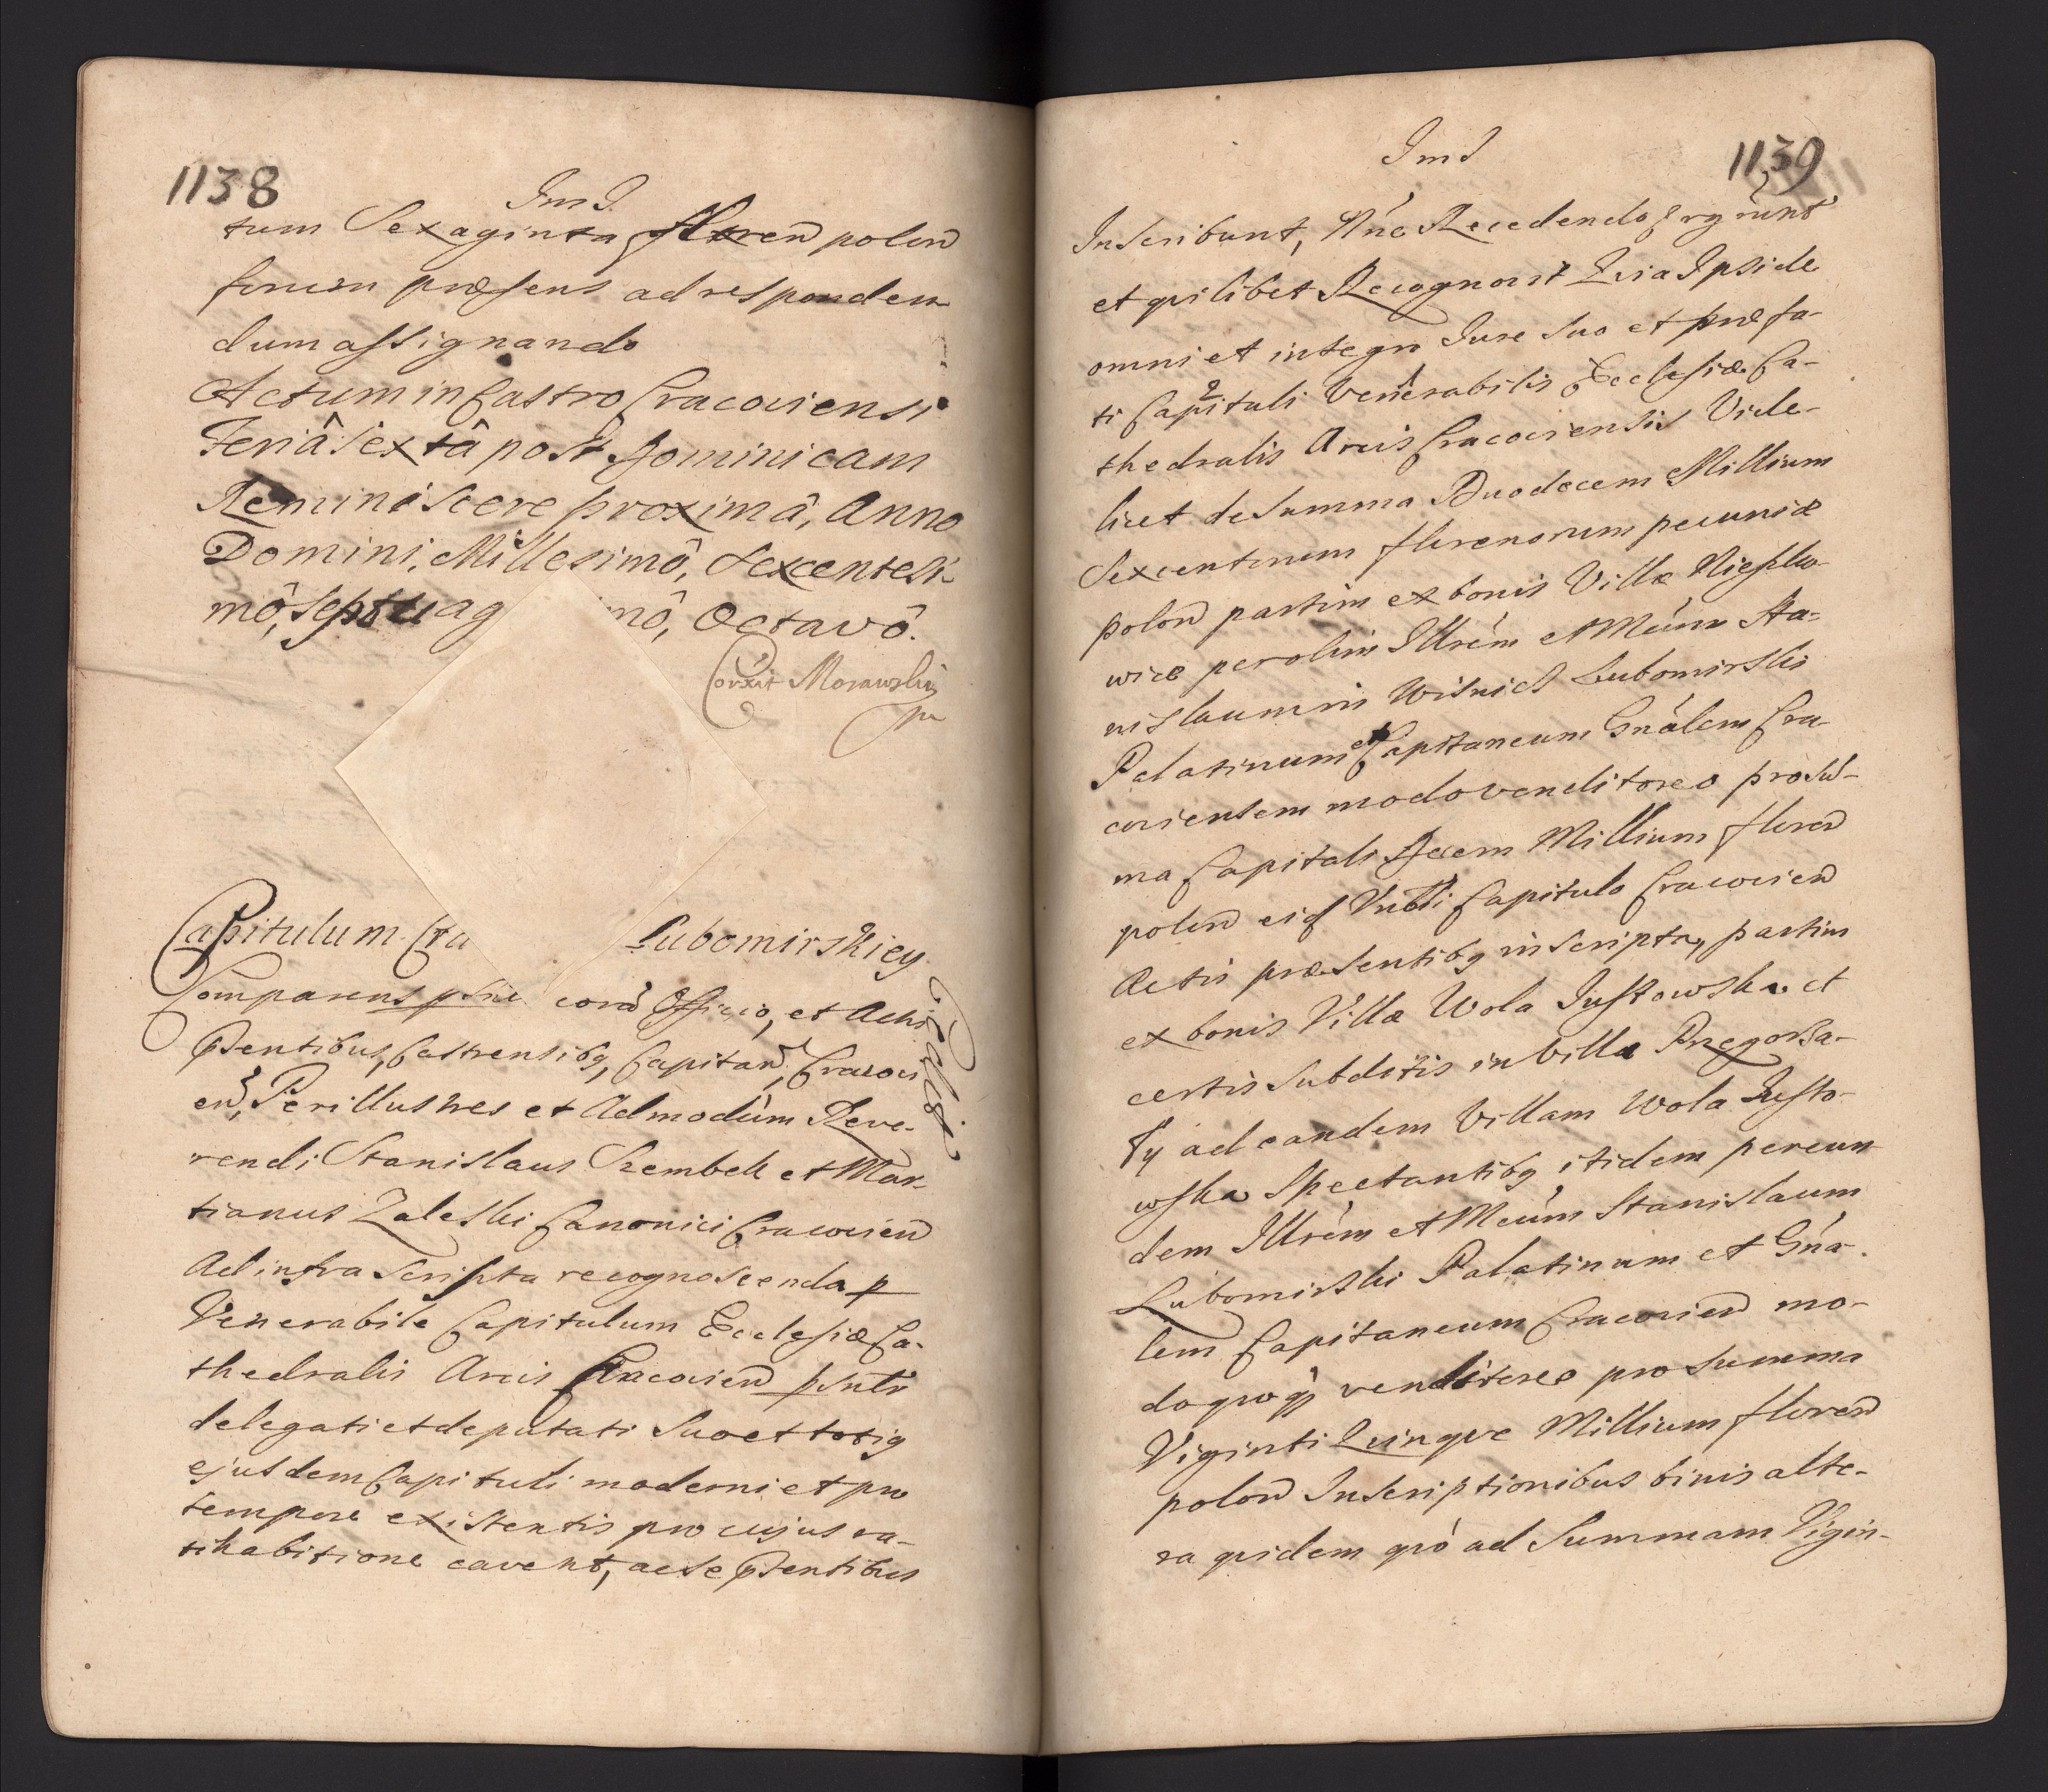 1138
Ims
tum Sexaginta floren polon
forum præsens ad responden
dum assignando
Actum in Castro Cracoviensi
Feriâ sextâ post Dominicam
Reminiscere proximâ, Anno
Domini, Millesimô, Sexcentesi-
mô, septuag mô, Octavô.
Morawski
Capitulum Cra Lubomirskiey
Comparens coră Officio, et Actis
Pntibus, Castrensibq, Capitan, Cracovi
en, Perillustres et Admodùm Reve-
rendi Stanislaus Szembek et Mar-
tianus Zaleski Canonici Cracovien
Ad infra scripta recognoscenda p
Venerabile Capitulum Ecclesiæ Ca-
thedralis Arcis Cracovien
delegati et deputati Suo et totiq
ejusdem Capituli moderni et pro
tempore existentis pro cujus ra-
tihabitione cavent, ac se Psentibus
1139
Ims
Inscribunt,
et quilibet Recognovit Quia Ipsi de
omni et integro Iure suo et præfa-
ti Capituli Venerabilis Ecclesiæ Ca-
thedralis Arcis Cracoviensis Vide-
licet de Summa Duodecem Millium
Sexcentorum florenorum pecuniæ
polon partim ex bonis Villæ
wice per olim Illrém et Mcúm Sta-
nislaum in Wisnicz Lubomirski
Palatinum et Capitaneum Gnálem Cra-
coviensem modo venditore pro Sum-
ma Capitali Decem Millium floren
polon eid Vnbli Capitulo Cracovien
Actis præsentibq inscripta, partim
ex bonis Villæ Wola Justowska et
certis subditis in Villa Przegorza-
ły ad eandem Villam Wola Justo-
wska Spectantibq itidem per eun
dem Illrém et Mcúm Stanislaum
Lubomirski Palatinum et Gná-
lem Capitaneum Cracovien mo-
do quoq venditore pro Summa
Viginti Quinque Millium floren
polon Inscriptionibus binis alte-
ra quidem quò ad Summam Vigin-